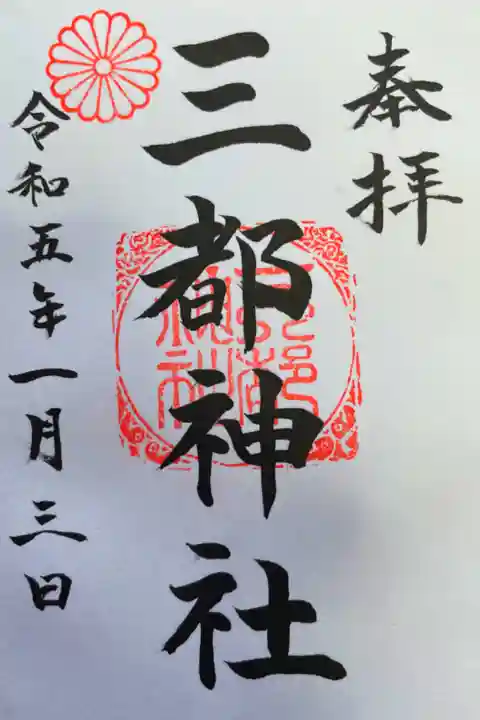 奉拝
三都神社
令和五年一月三日